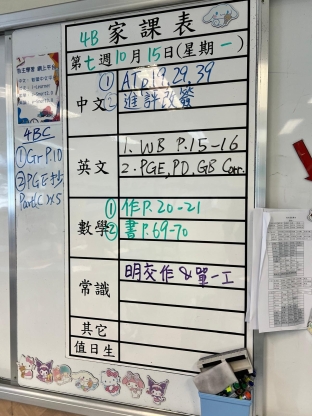 4B 家課表
第七週10月15日(星期一)
中文
① AT p.19, 29, 39
② 進評改簽
英文
1. WB P.15-16
2. PGE, PD, GB Corr.
數學
① 作P.20-21
② 書P.69-70
常識
明交作 & 單一工
其它
值日生
4BC
① Gr P.10
② PGE抄
Part C X5